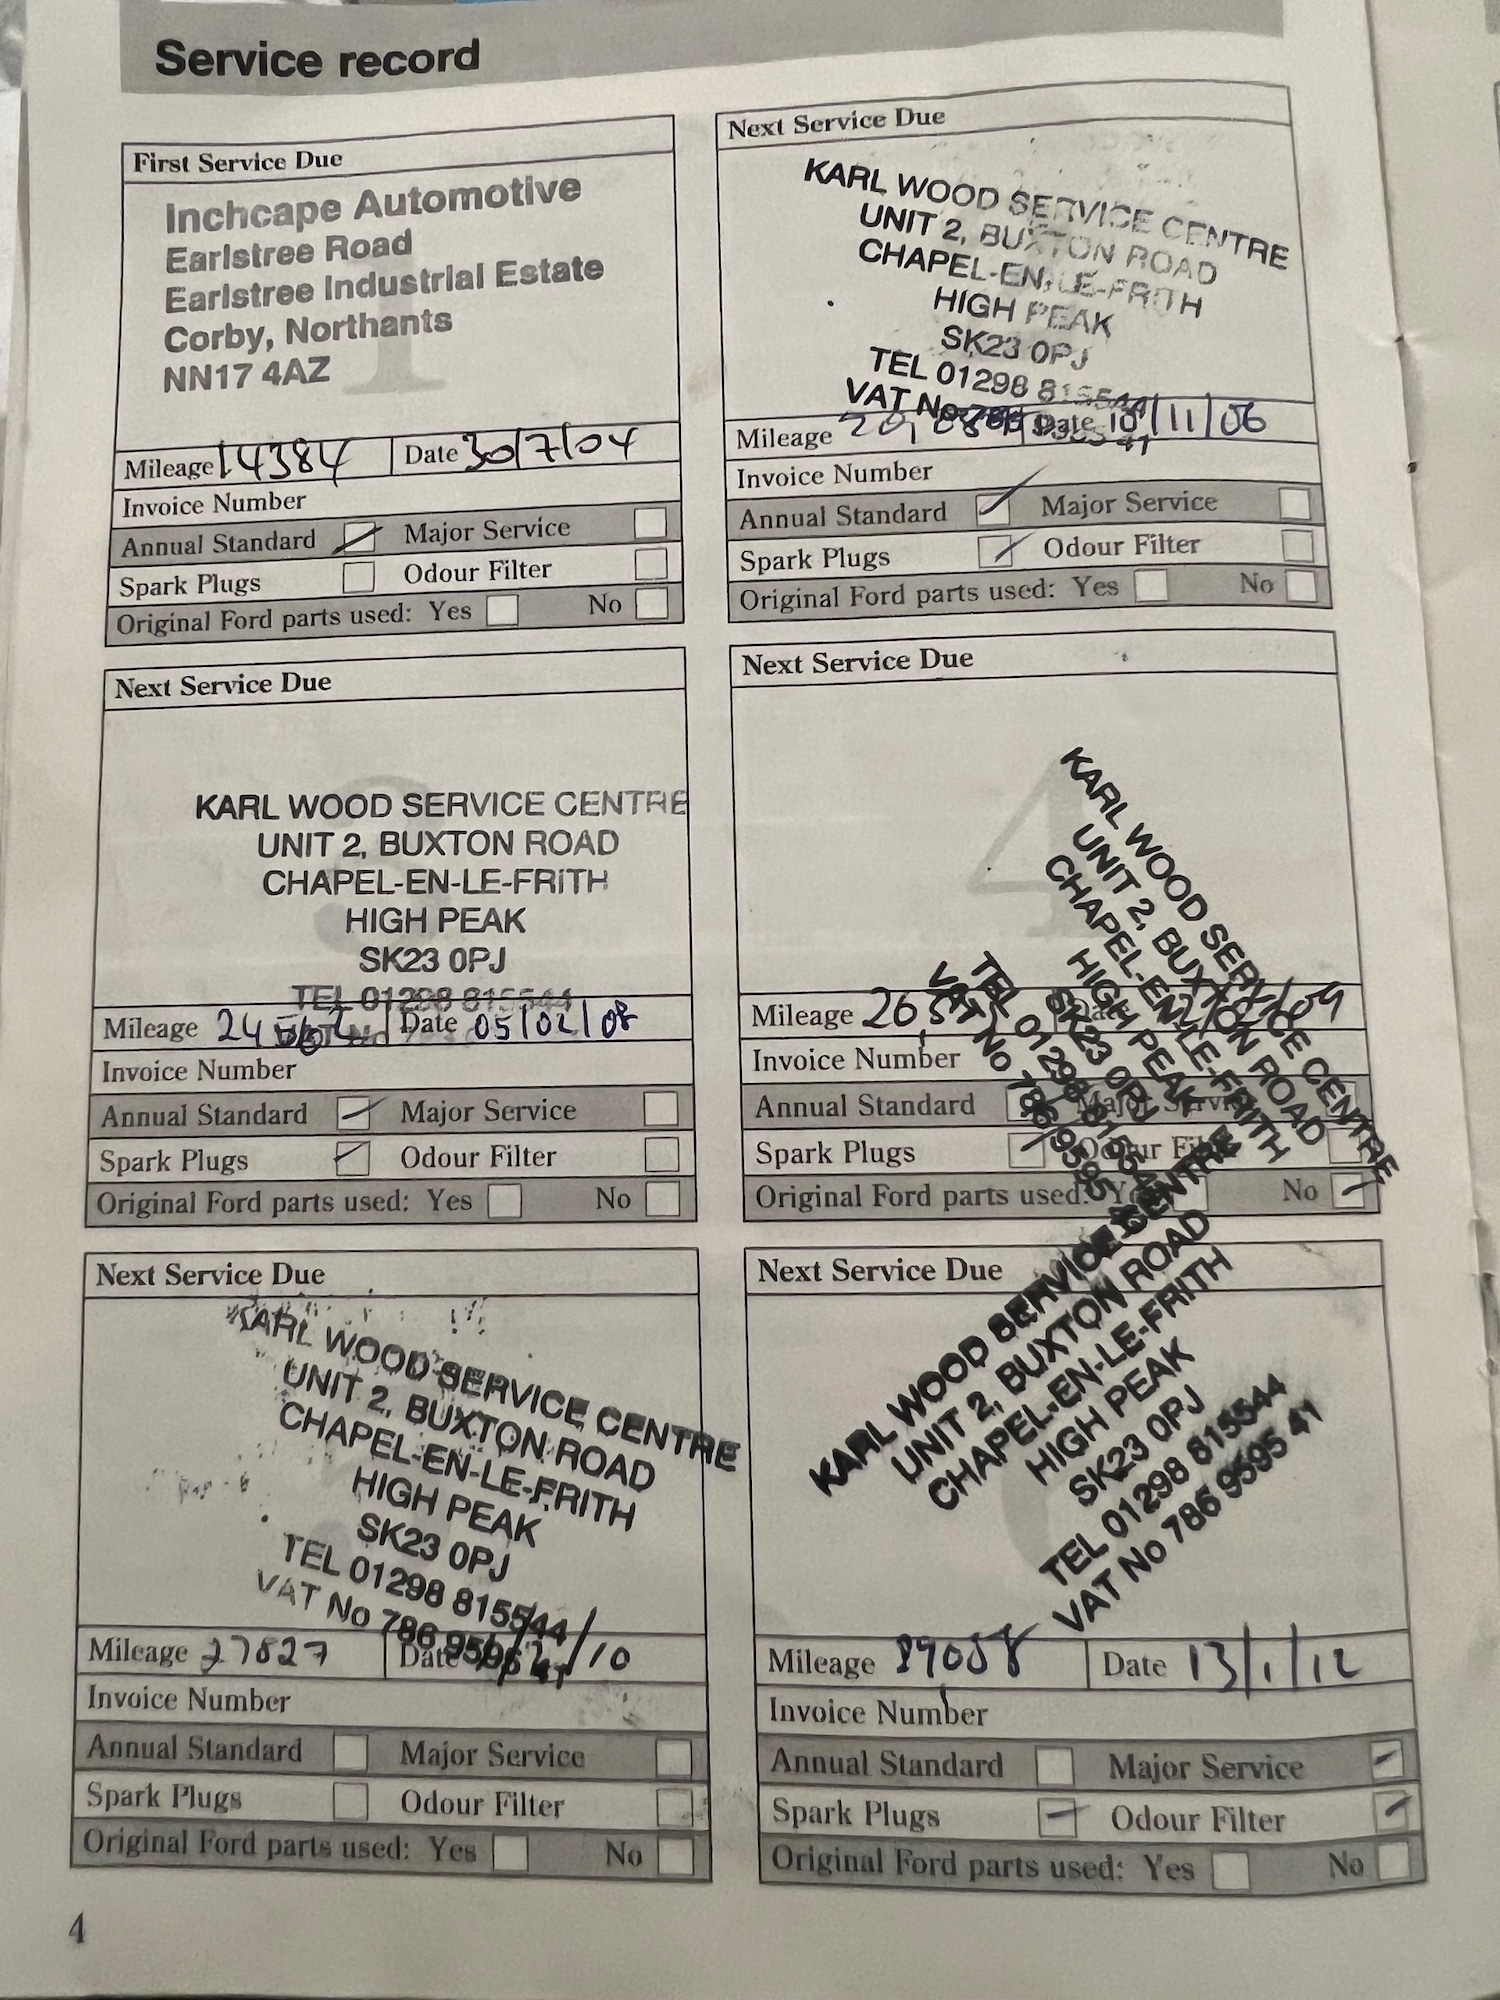 Service record
First Service Due
Inchcape Automotive
Earlstree Road
Earlstree Industrial Estate
Corby, Northants
NN17 4AZ
1
Mileage 14384 Date 30/7/04
Invoice Number
Annual Standard Major Service
Spark Plugs Odour Filter
Original Ford parts used: Yes No
Next Service Due
KARL WOOD SERVICE CENTRE
UNIT 2, BUXTON ROAD
CHAPEL-EN-LE-FRITH
HIGH PEAK
SK23 0PJ
TEL 01298 815544
VAT No
Mileage Date 10/11/06
Invoice Number
Annual Standard Major Service
Spark Plugs Odour Filter
Original Ford parts used: Yes No
Next Service Due
KARL WOOD SERVICE CENTRE
UNIT 2, BUXTON ROAD
CHAPEL-EN-LE-FRITH
HIGH PEAK
SK23 0PJ
TEL 01298 815544
Mileage Date 05/02/08
Invoice Number
Annual Standard Major Service
Spark Plugs Odour Filter
Original Ford parts used: Yes No
Next Service Due
4
KARL WOOD SERVICE CENTRE
UNIT 2, BUXTON ROAD
CHAPEL-EN-LE-FRITH
HIGH PEAK
SK23 0PJ
TEL 01298 815544
VAT No 786 9595
Mileage Date
Invoice Number
Annual Standard Major Service
Spark Plugs Odour Filter
Original Ford parts used: Yes No
Next Service Due
KARL WOOD SERVICE CENTRE
UNIT 2, BUXTON ROAD
CHAPEL-EN-LE-FRITH
HIGH PEAK
SK23 0PJ
TEL 01298 815544
VAT No 786 9595 41
Mileage 27827 Date
Invoice Number
Annual Standard Major Service
Spark Plugs Odour Filter
Original Ford parts used: Yes No
Next Service Due
KARL WOOD SERVICE CENTRE
UNIT 2, BUXTON ROAD
CHAPEL-EN-LE-FRITH
HIGH PEAK
SK23 0PJ
TEL 01298 815544
VAT No 786 9595 41
Mileage Date 13/1/12
Invoice Number
Annual Standard Major Service
Spark Plugs Odour Filter
Original Ford parts used: Yes No
4